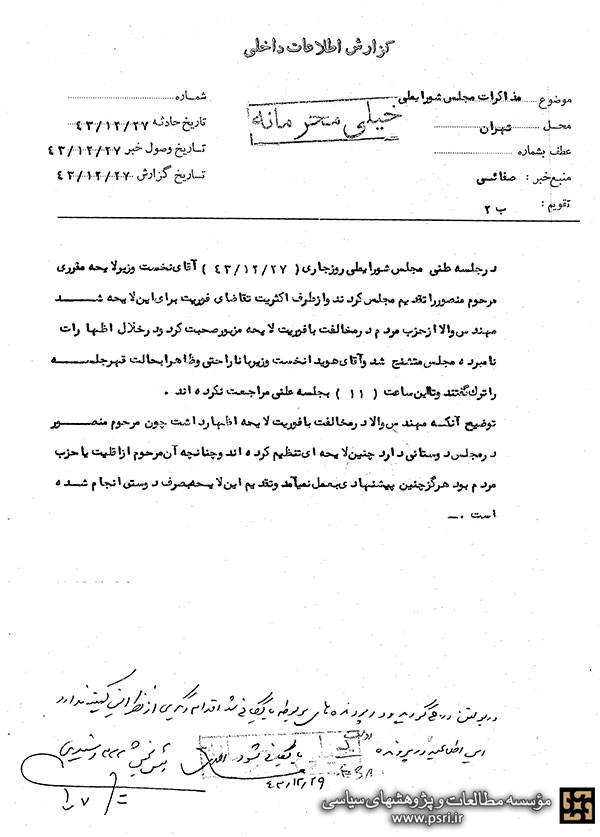 گزارش اطلاعات داخلی
موضوع مذاکرات مجلس شورایملی
شماره
خیلی محرمانه
محل تهران
تاریخ حادثه ۴۳/۱۲/۲۷
عطف بشماره
تاریخ وصول خبر ۴۳/۱۲/۲۷
منبع خبر : صفائی
تاریخ گزارش ۴۳/۱۲/۲۷
تقویم : ب ۲
در جلسه علنی مجلس شورایملی روز جاری ( ۴۳/۱۲/۲۷ ) آقای نخست وزیر لایحه مقرری
مرحوم منصور را تقدیم مجلس کردند و از طرف اکثریت تقاضای فوریت برای این لایحه شد
مهندس والا از حزب مردم در مخالفت با فوریت لایحه مزبور صحبت کرد و در خلال اظهارات
نامبرده مجلس متشنج شد و آقای هویدا نخست وزیر با ناراحتی و ظاهرا بحالت قهر جلسه
را ترک گفتند و تا این ساعت ( ۱۱ ) بجلسه علنی مراجعت نکرده اند .
توضیح آنکه مهندس والا در مخالفت با فوریت لایحه اظهار داشت چون مرحوم منصور
در مجلس دوستانی دارد چنین لایحه ای تنظیم کرده اند و چنانچه آن مرحوم از اقلیت یا حزب
مردم بود هرگز چنین پیشنهادی بعمل نمیآمد و تقدیم این لایحه بصرف دوستی انجام شده
است .ــ
در بولتن درج گردید و در پرونده های مربوطه بایگانی شد اقدام دیگری از نظر این کمیته ندارد
این اطلاعیه در پرونده
بایگانی شود
۴۳/۱۲/۲۹
مؤسسه مطالعات و پژوهشهای سیاسی
www.psri.ir